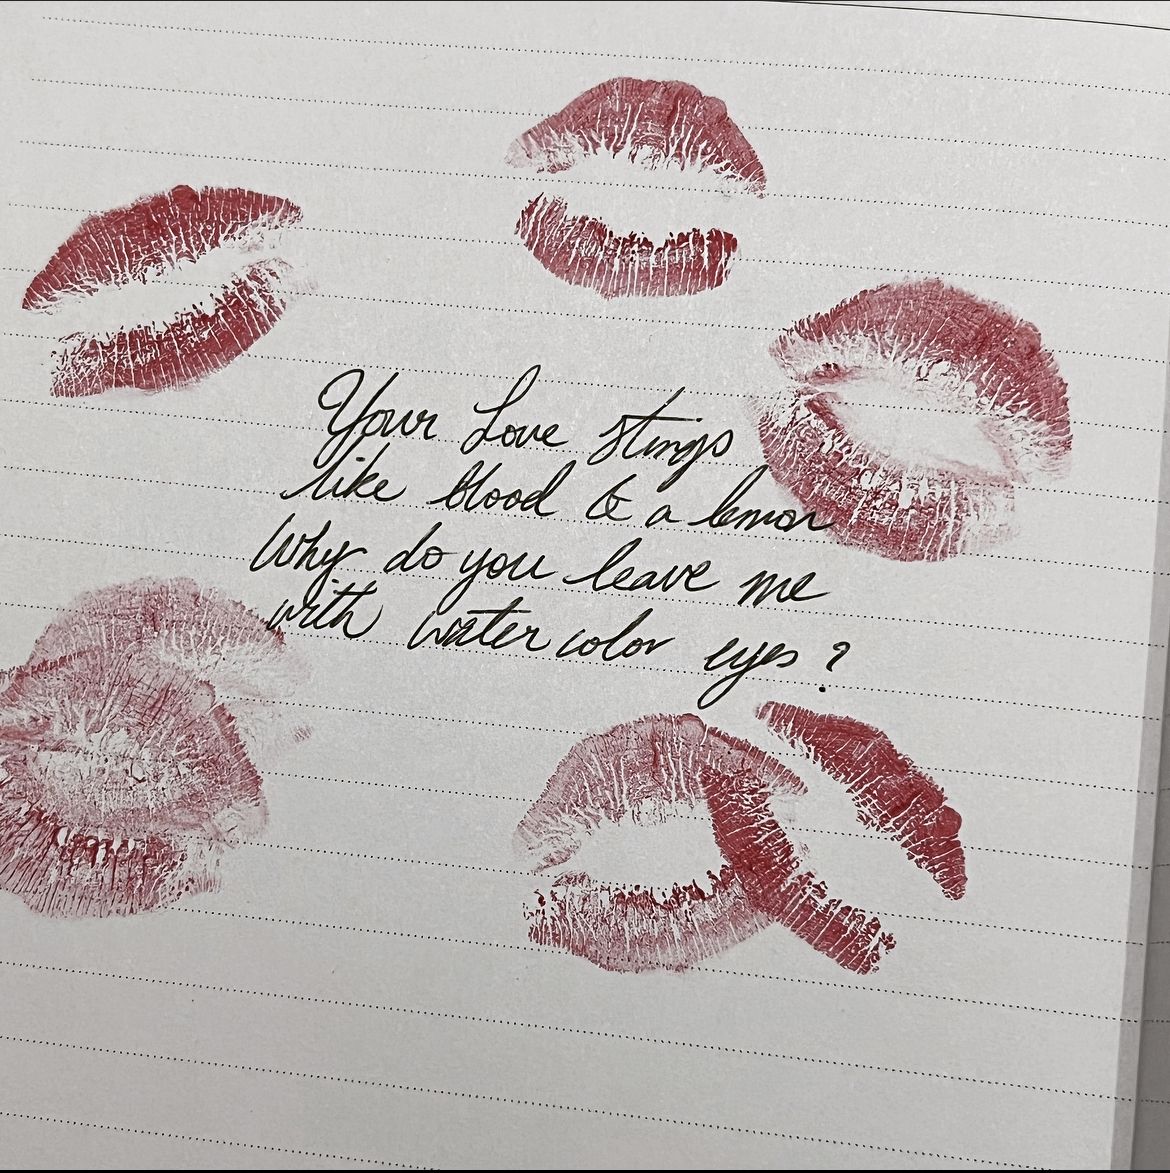 Your Love stings
like blood & a lemon
Why do you leave me
with watercolor eyes?